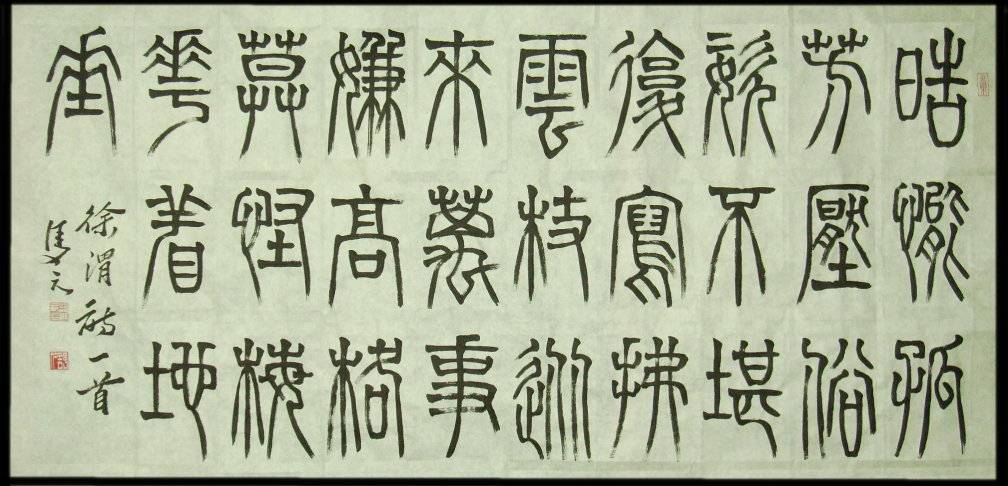 皓態孤
芳壓俗
姿不堪
復寫拂
雲枝從
來萬事
嫌高格
莫怪梅
華着地
垂
徐渭詩一首